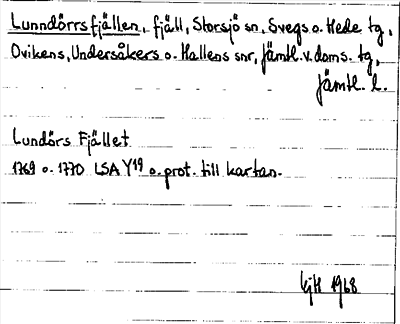 Lunndörrsfjällen, fjäll, Storsjö sn, Svegs o. Hede tg,
Ovikens, Undersåkers o. Hallens snr, Jämtl. v. doms. tg,
Jämtl. l.
Lundörs Fjället
1769 o. 1770 LSA Y19 o. prot. till kartan.
1968